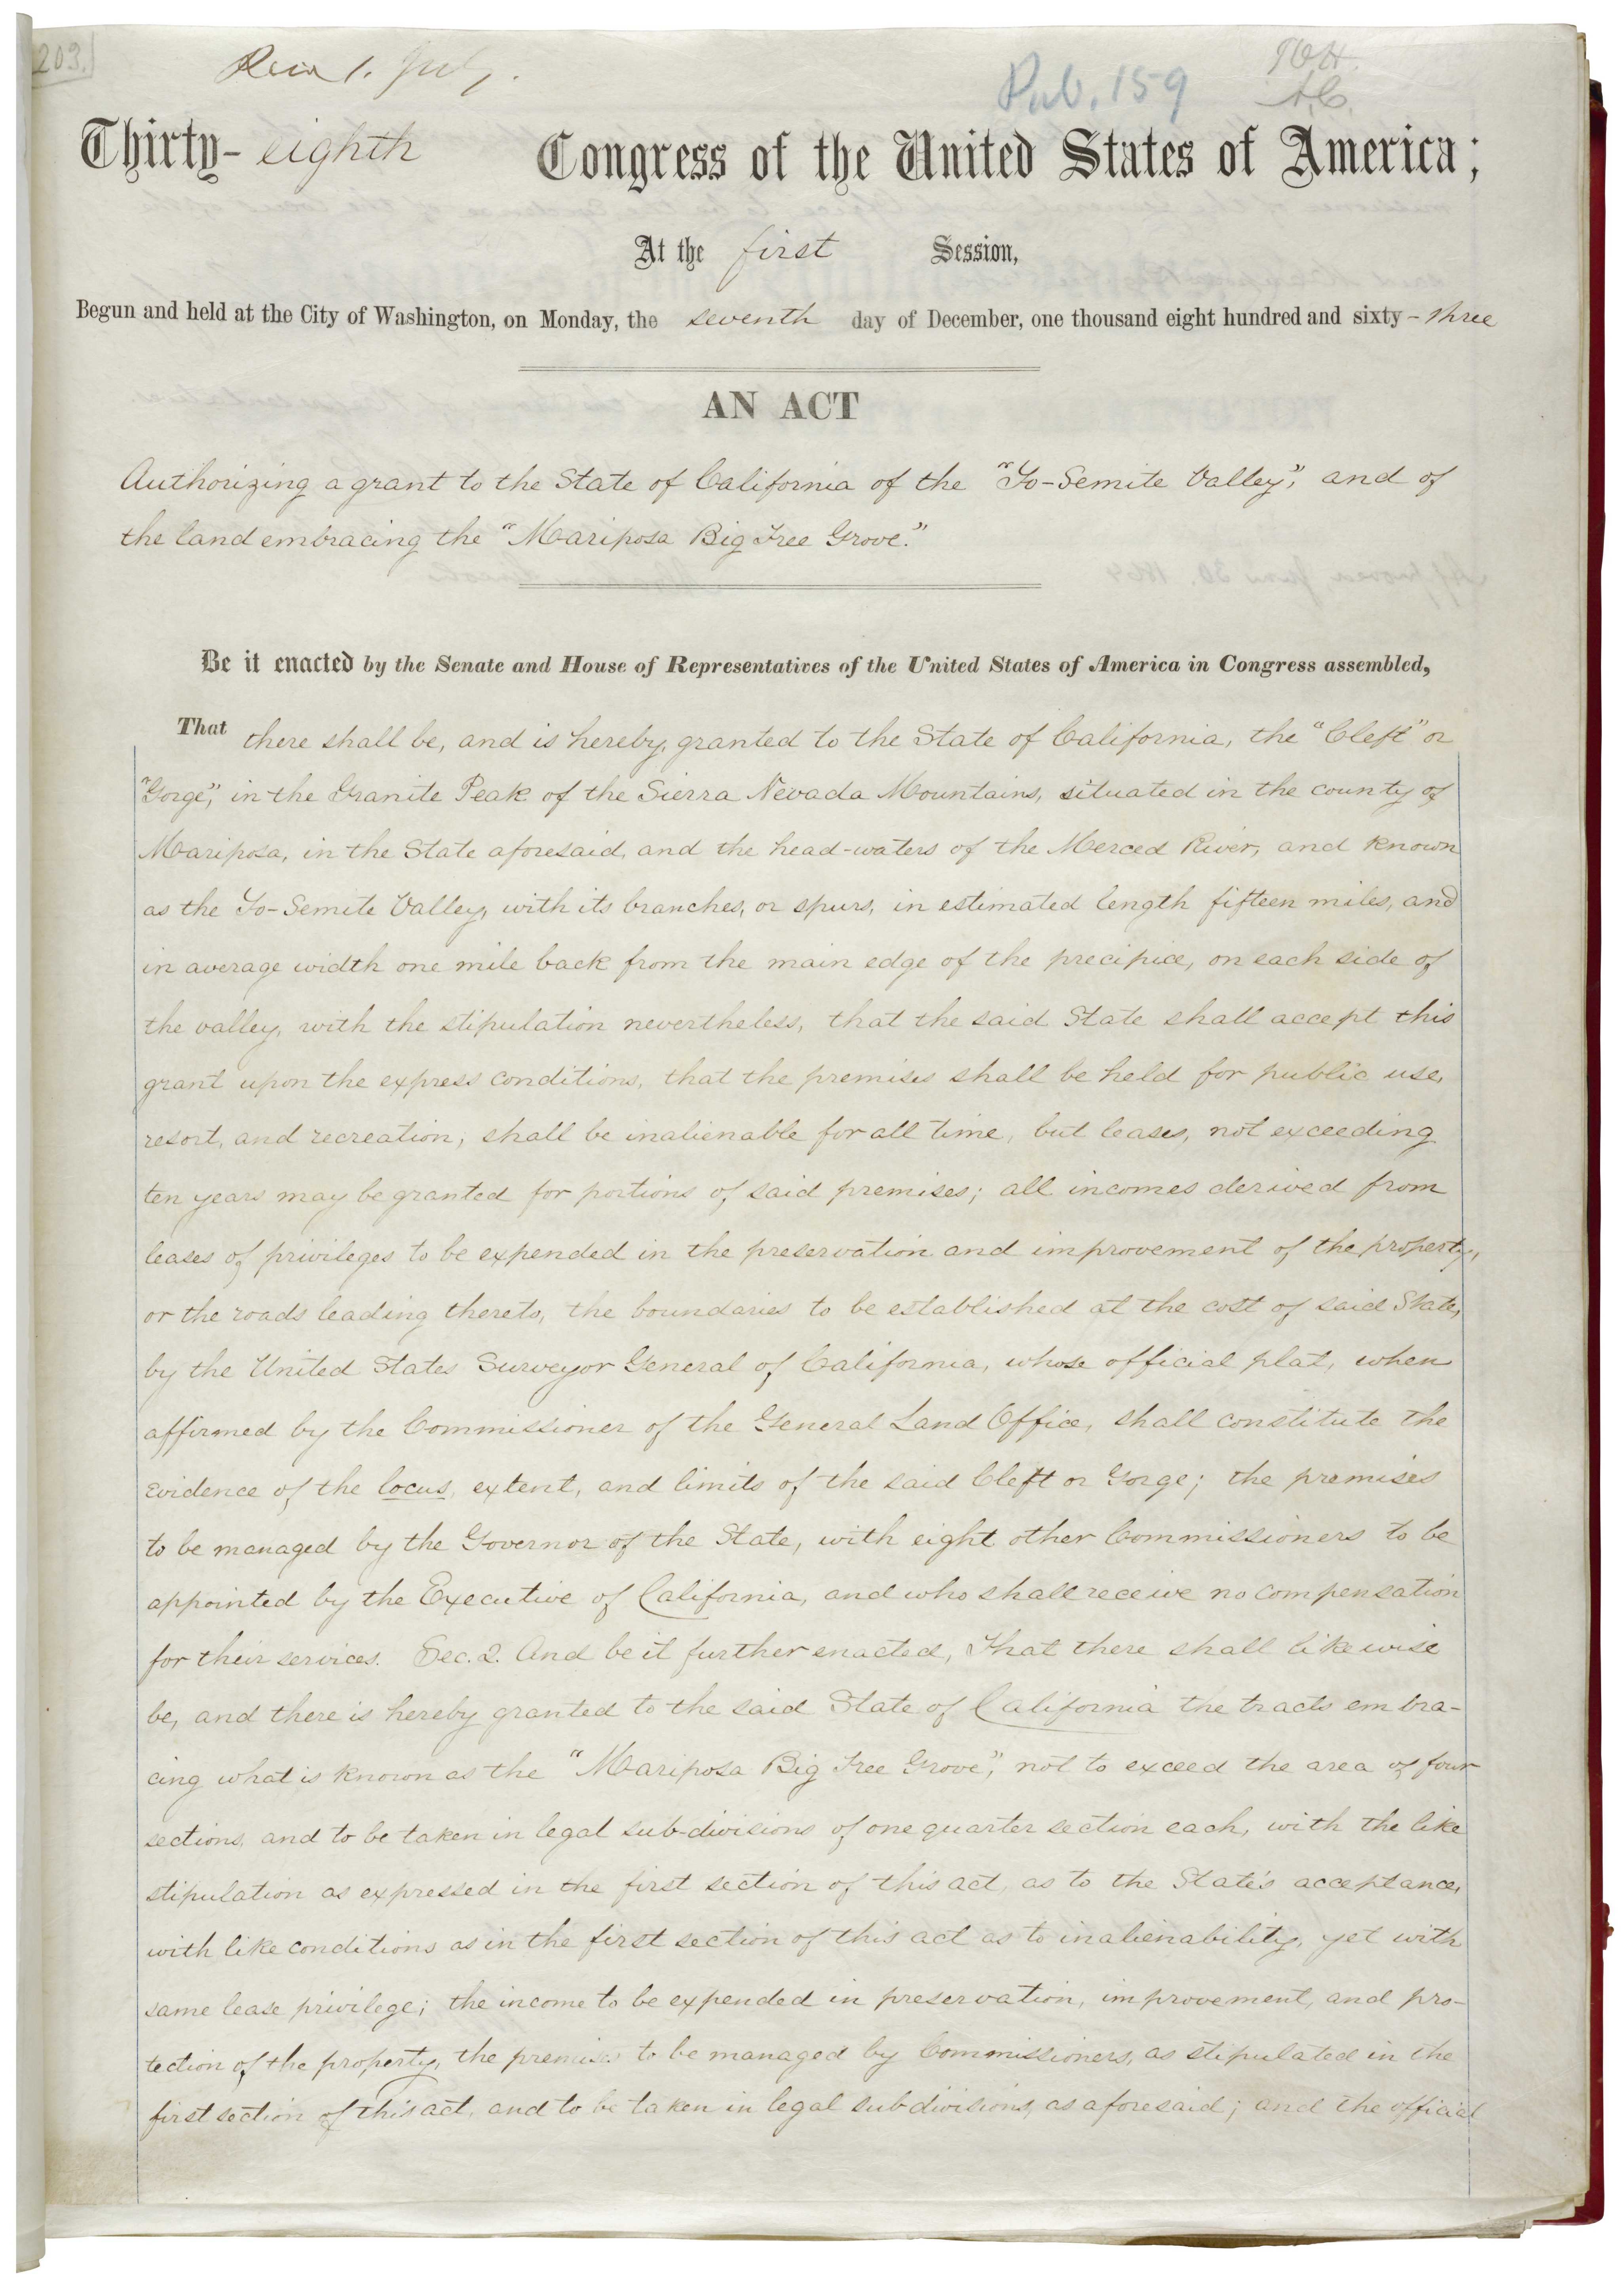 203.
Pub. 159
Thirty-eighth Congress of the United States of America;
At the first Session,
Begun and held at the City of Washington, on Monday, the seventh day of December, one thousand eight hundred and sixty-three
AN ACT
Authorizing a grant to the State of California of the "Yo-Semite Valley," and of
the land embracing the "Mariposa Big Tree Grove."
Be it enacted by the Senate and House of Representatives of the United States of America in Congress assembled,
That there shall be, and is hereby, granted to the State of California, the "Cleft" or
"Gorge," in the Granite Peak of the Sierra Nevada Mountains, situated in the county of
Mariposa, in the State aforesaid, and the head-waters of the Merced River, and known
as the Yo-Semite Valley, with its branches, or spurs, in estimated length fifteen miles, and
in average width one mile back from the main edge of the precipice, on each side of
the valley, with the stipulation nevertheless, that the said State shall accept this
grant upon the express conditions, that the premises shall be held for public use,
resort, and recreation; shall be inalienable for all time, but leases, not exceeding
ten years may be granted for portions of said premises; all incomes derived from
leases of privileges to be expended in the preservation and improvement of the property,
or the roads leading thereto, the boundaries to be established at the cost of said State,
by the United States Surveyor General of California, whose official plat, when
affirmed by the Commissioner of the General Land Office, shall constitute the
evidence of the locus, extent, and limits of the said Cleft or Gorge; the premises
to be managed by the Governor of the State, with eight other Commissioners to be
appointed by the Executive of California, and who shall receive no compensation
for their services. Sec. 2. And be it further enacted, That there shall likewise
be, and there is hereby granted to the said State of California the tracts embra-
cing what is known as the "Mariposa Big Tree Grove," not to exceed the area of four
sections, and to be taken in legal sub-divisions of one quarter section each, with the like
stipulation as expressed in the first section of this act, as to the State's acceptance,
with like conditions as in the first section of this act as to inalienability, yet with
same lease privilege; the income to be expended in preservation, improvement, and pro-
tection of the property, the premises to be managed by Commissioners, as stipulated in the
first section of this act, and to be taken in legal sub divisions, as aforesaid; and the official